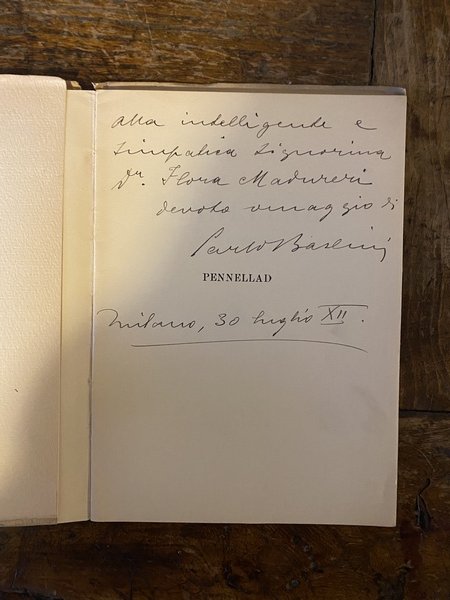 alla intelligente e
simpatica signorina
Dr. Flora Madureri
devoto omaggio di
Carlo Baslini
PENNELLAD
Milano, 30 luglio XII.